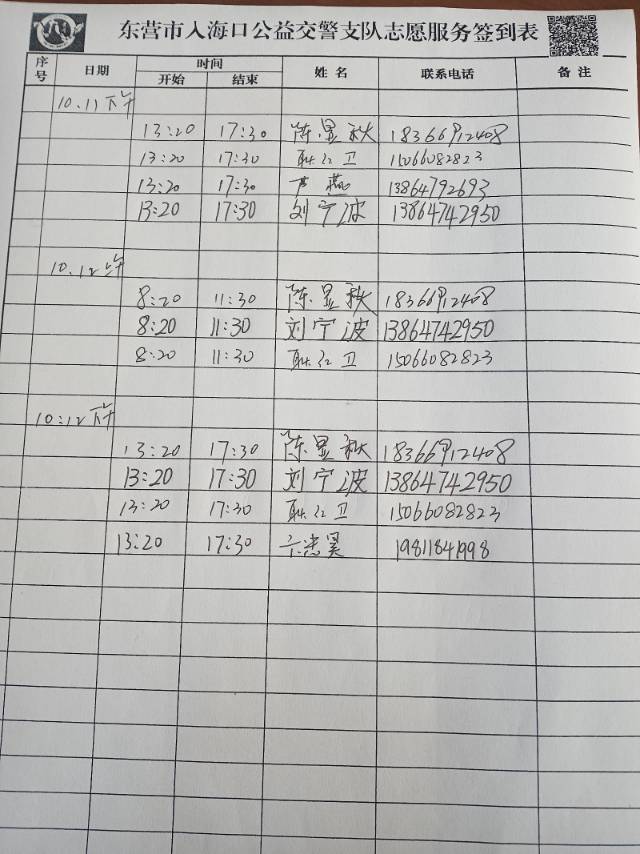 东营市入海口公益交警支队志愿服务签到表
序号 日期 时间 姓名 联系电话 备注
开始 结束
10.11下午
13:20 17:30 陈显秋 18366912408
13:20 17:30 耿红卫 15066082823
13:20 17:30 芦燕 13864792693
13:20 17:30 刘宁波 13864742950
10.12上午
8:20 11:30 陈显秋 18366912408
8:20 11:30 刘宁波 13864742950
8:20 11:30 耿红卫 15066082823
10:12下午
13:20 17:30 陈显秋 18366912408
13:20 17:30 刘宁波 13864742950
13:20 17:30 耿红卫 15066082823
13:20 17:30 19811841998